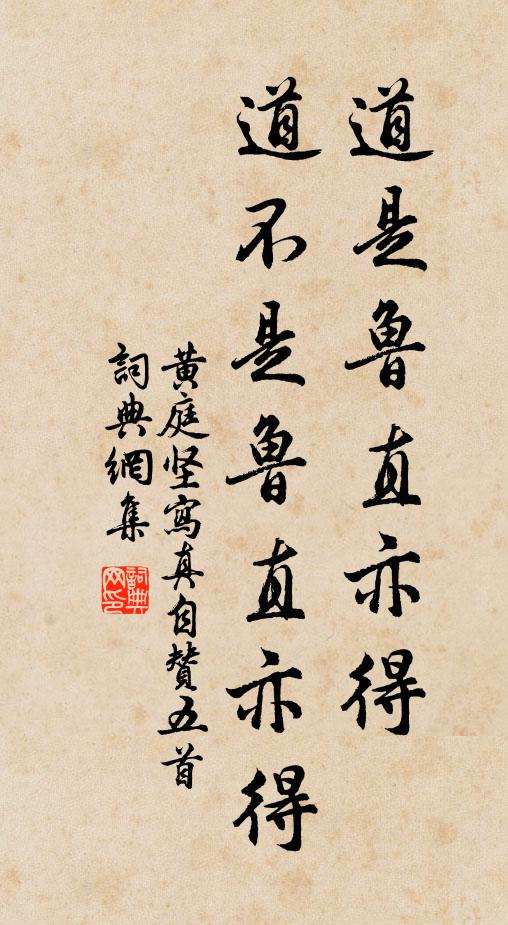 道是魯直亦得
道不是魯直亦得
黄庭坚寫真自贊五首
詞典網集
詞典網印